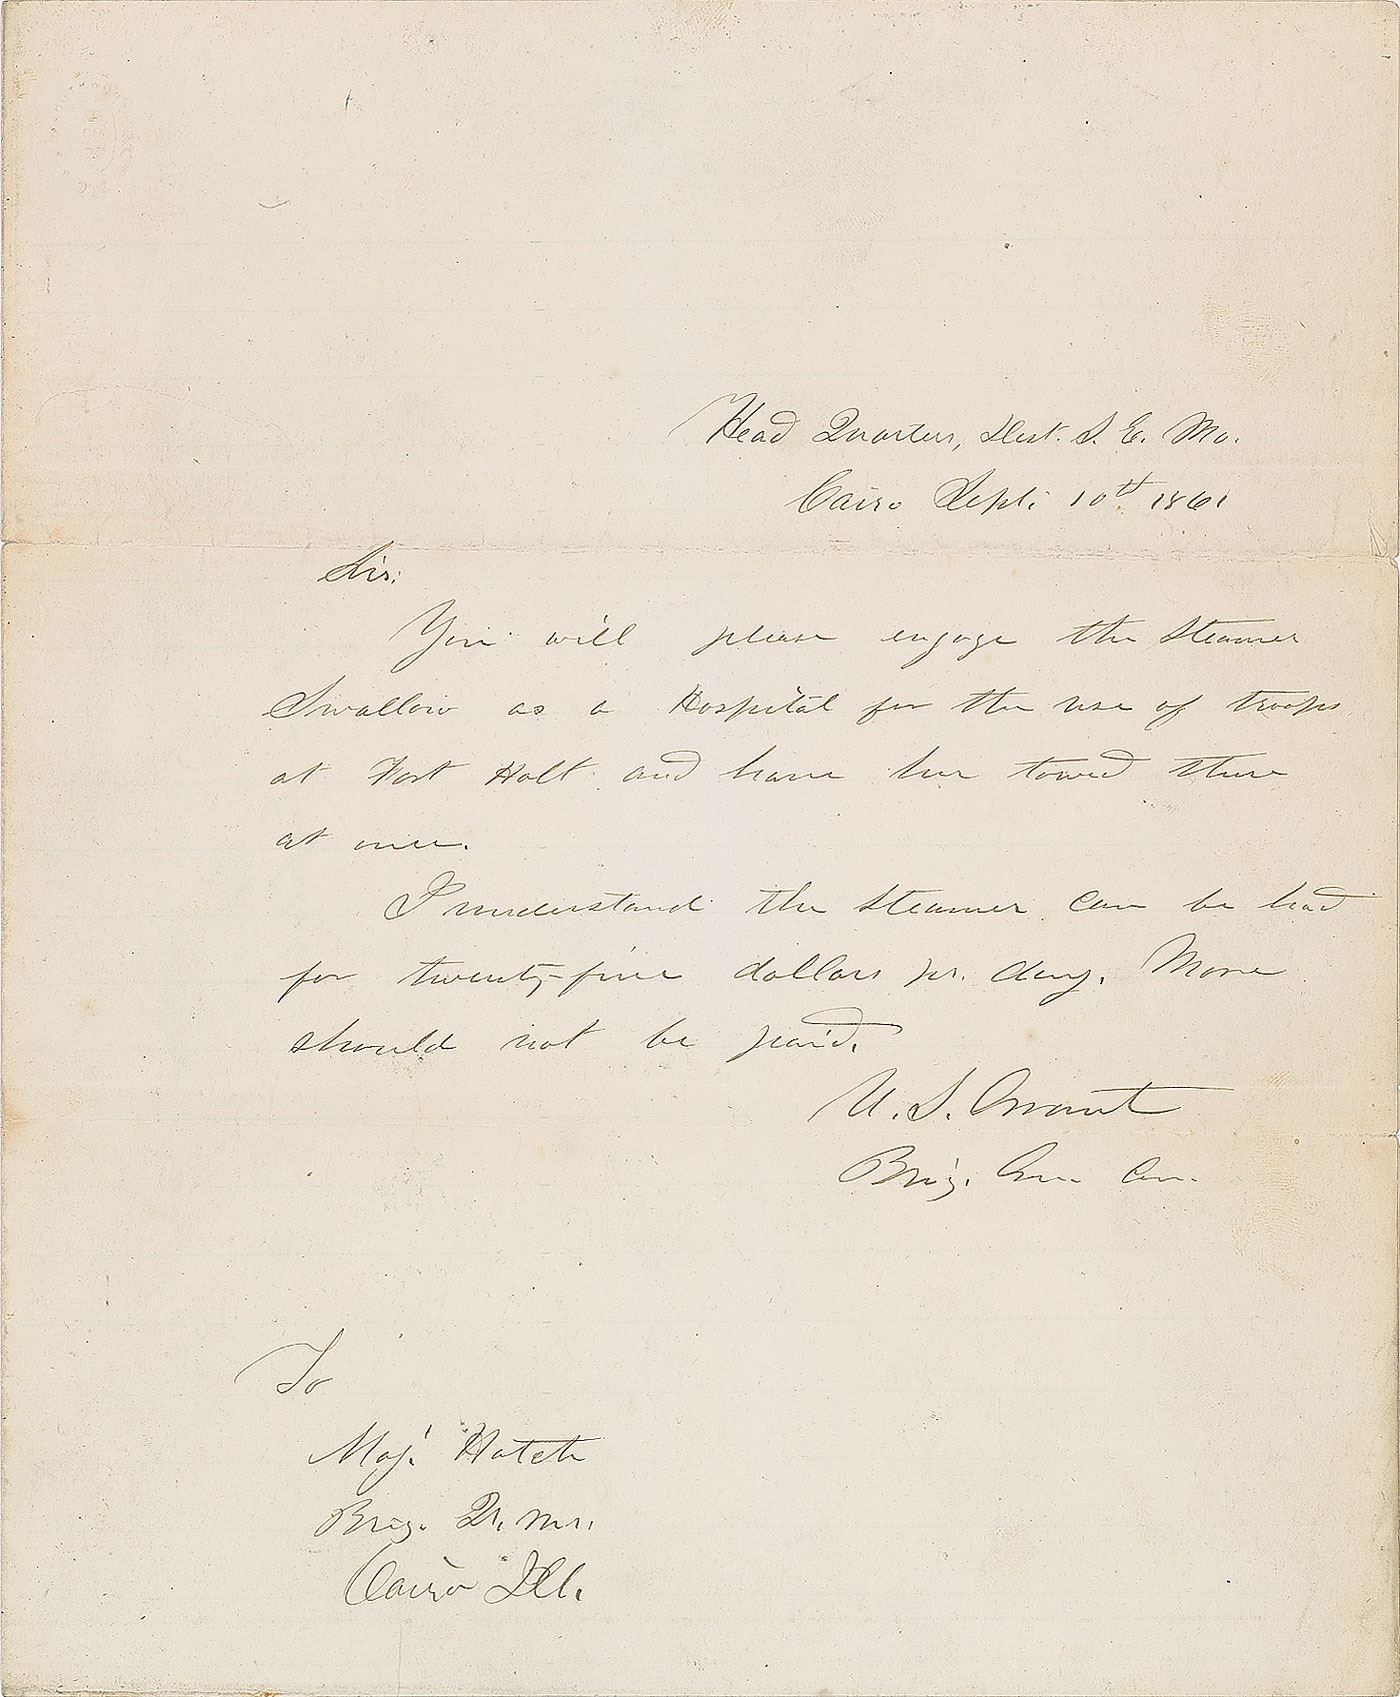 Head Quarters, Dist. S. E. Mo.
Cairo Sept. 10th 1861
Sir:
You will please engage the Steamer
Swallow as a Hospital for the use of troops
at Fort Holt and have her towed there
at once.
I understand the steamer can be had
for twenty-five dollars pr. day. More
should not be paid.
U. S. Grant
Brig. Gen. Com.
To
Maj. Hatch
Brig. Qr. Mr.
Cairo Ill.